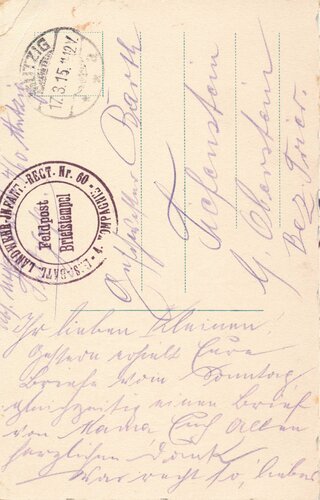 MUTZIG
17.3.15.11-12V.
ERSATZ. LANDWEHR-INFANT.-REGT. Nr. 60
KOMPAGNIE
Feldpost
Briefstempel
Barth
Tiefenstein
b/ Oberstein
Bez. Trier.
Ihr lieben Kleinen.
Gestern erhielt Eure
Briefe vom Sonntag
gleichzeitig einen Brief
von Mama Euch Allen
herzlichen Dank
Was recht so, liebes